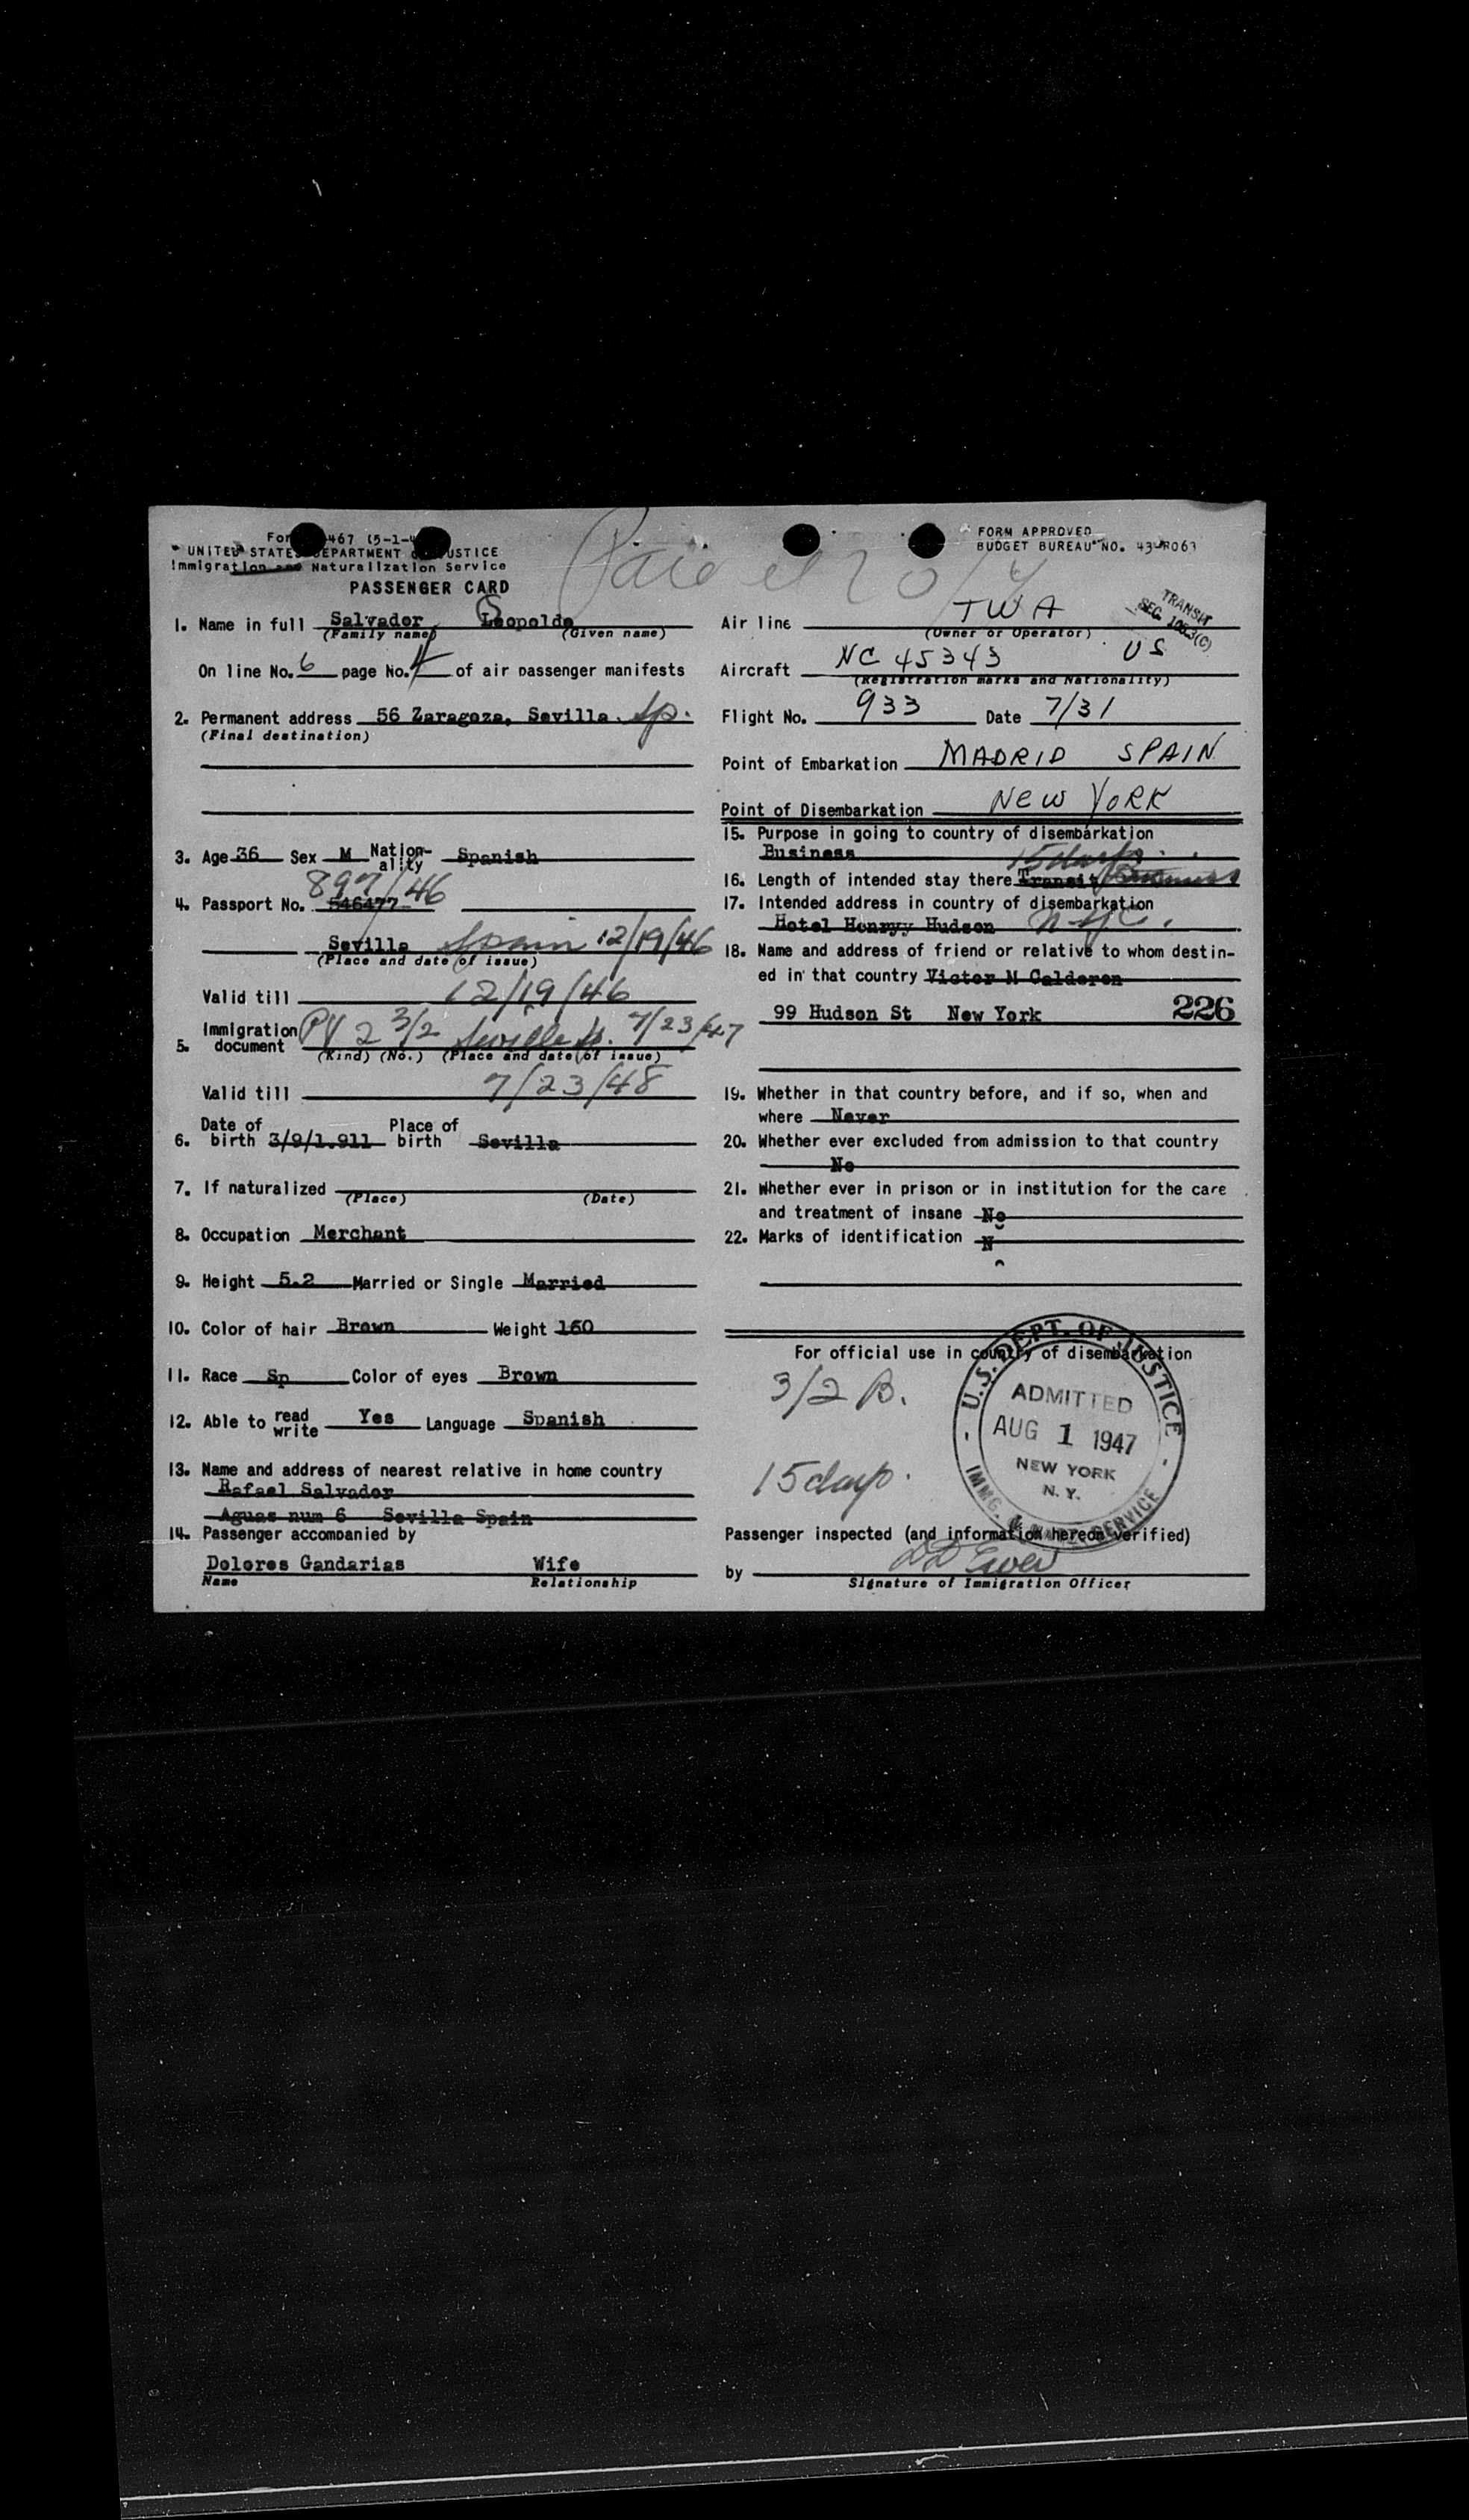 For 467 (5-1-4
UNITED STATES DEPARTMENT OF JUSTICE
Immigration and Naturalization Service
PASSENGER CARD
1. Name in full Salvador Leopoldo
(Family name) (Given name)
On line No. 6 page No. 4 of air passenger manifests
2. Permanent address 56 Zaragoza, Sevilla. Sp.
(Final destination)
3. Age 36 Sex M Nation-ality Spanish
897/46
4. Passport No. 546477
Sevilla Spain 12/19/46
(Place and date of issue)
Valid till 12/19/46
5. Immigration document PV 2 3/2 Seville Sp. 7/23/47
(Kind) (No.) (Place and date of issue)
Valid till 7/23/48
6. Date of birth 3/9/1.911 Place of birth Sevilla
7. If naturalized
(Place) (Date)
8. Occupation Merchant
9. Height 5.2 Married or Single Married
10. Color of hair Brown Weight 160
11. Race Sp Color of eyes Brown
12. Able to read write Yes Language Spanish
13. Name and address of nearest relative in home country
Rafael Salvador
Aguas num 6 Sevilla Spain
14. Passenger accompanied by
Dolores Gandarias Wife
Name Relationship
FORM APPROVED
BUDGET BUREAU NO. 43-R063
TRANSIT
SEC.
Air line TWA
(Owner or Operator)
Aircraft NC 45343 US
(Registration marks and Nationality)
Flight No. 933 Date 7/31
Point of Embarkation MADRID SPAIN
Point of Disembarkation NEW YORK
15. Purpose in going to country of disembarkation
Business 15 days
16. Length of intended stay there Transit
17. Intended address in country of disembarkation
Hotel Henryy Hudson N.Y.C.
18. Name and address of friend or relative to whom destin-
ed in that country Victor M Calderon
99 Hudson St New York 226
19. Whether in that country before, and if so, when and
where Never
20. Whether ever excluded from admission to that country
No
21. Whether ever in prison or in institution for the care
and treatment of insane No
22. Marks of identification N
For official use in country of disembarkation
3/2 B.
15 days.
U.S. DEPT. OF JUSTICE
ADMITTED
AUG 1 1947
NEW YORK
N. Y.
IMMG. & NATZ. SERVICE
Passenger inspected (and information hereon verified)
by
Signature of Immigration Officer